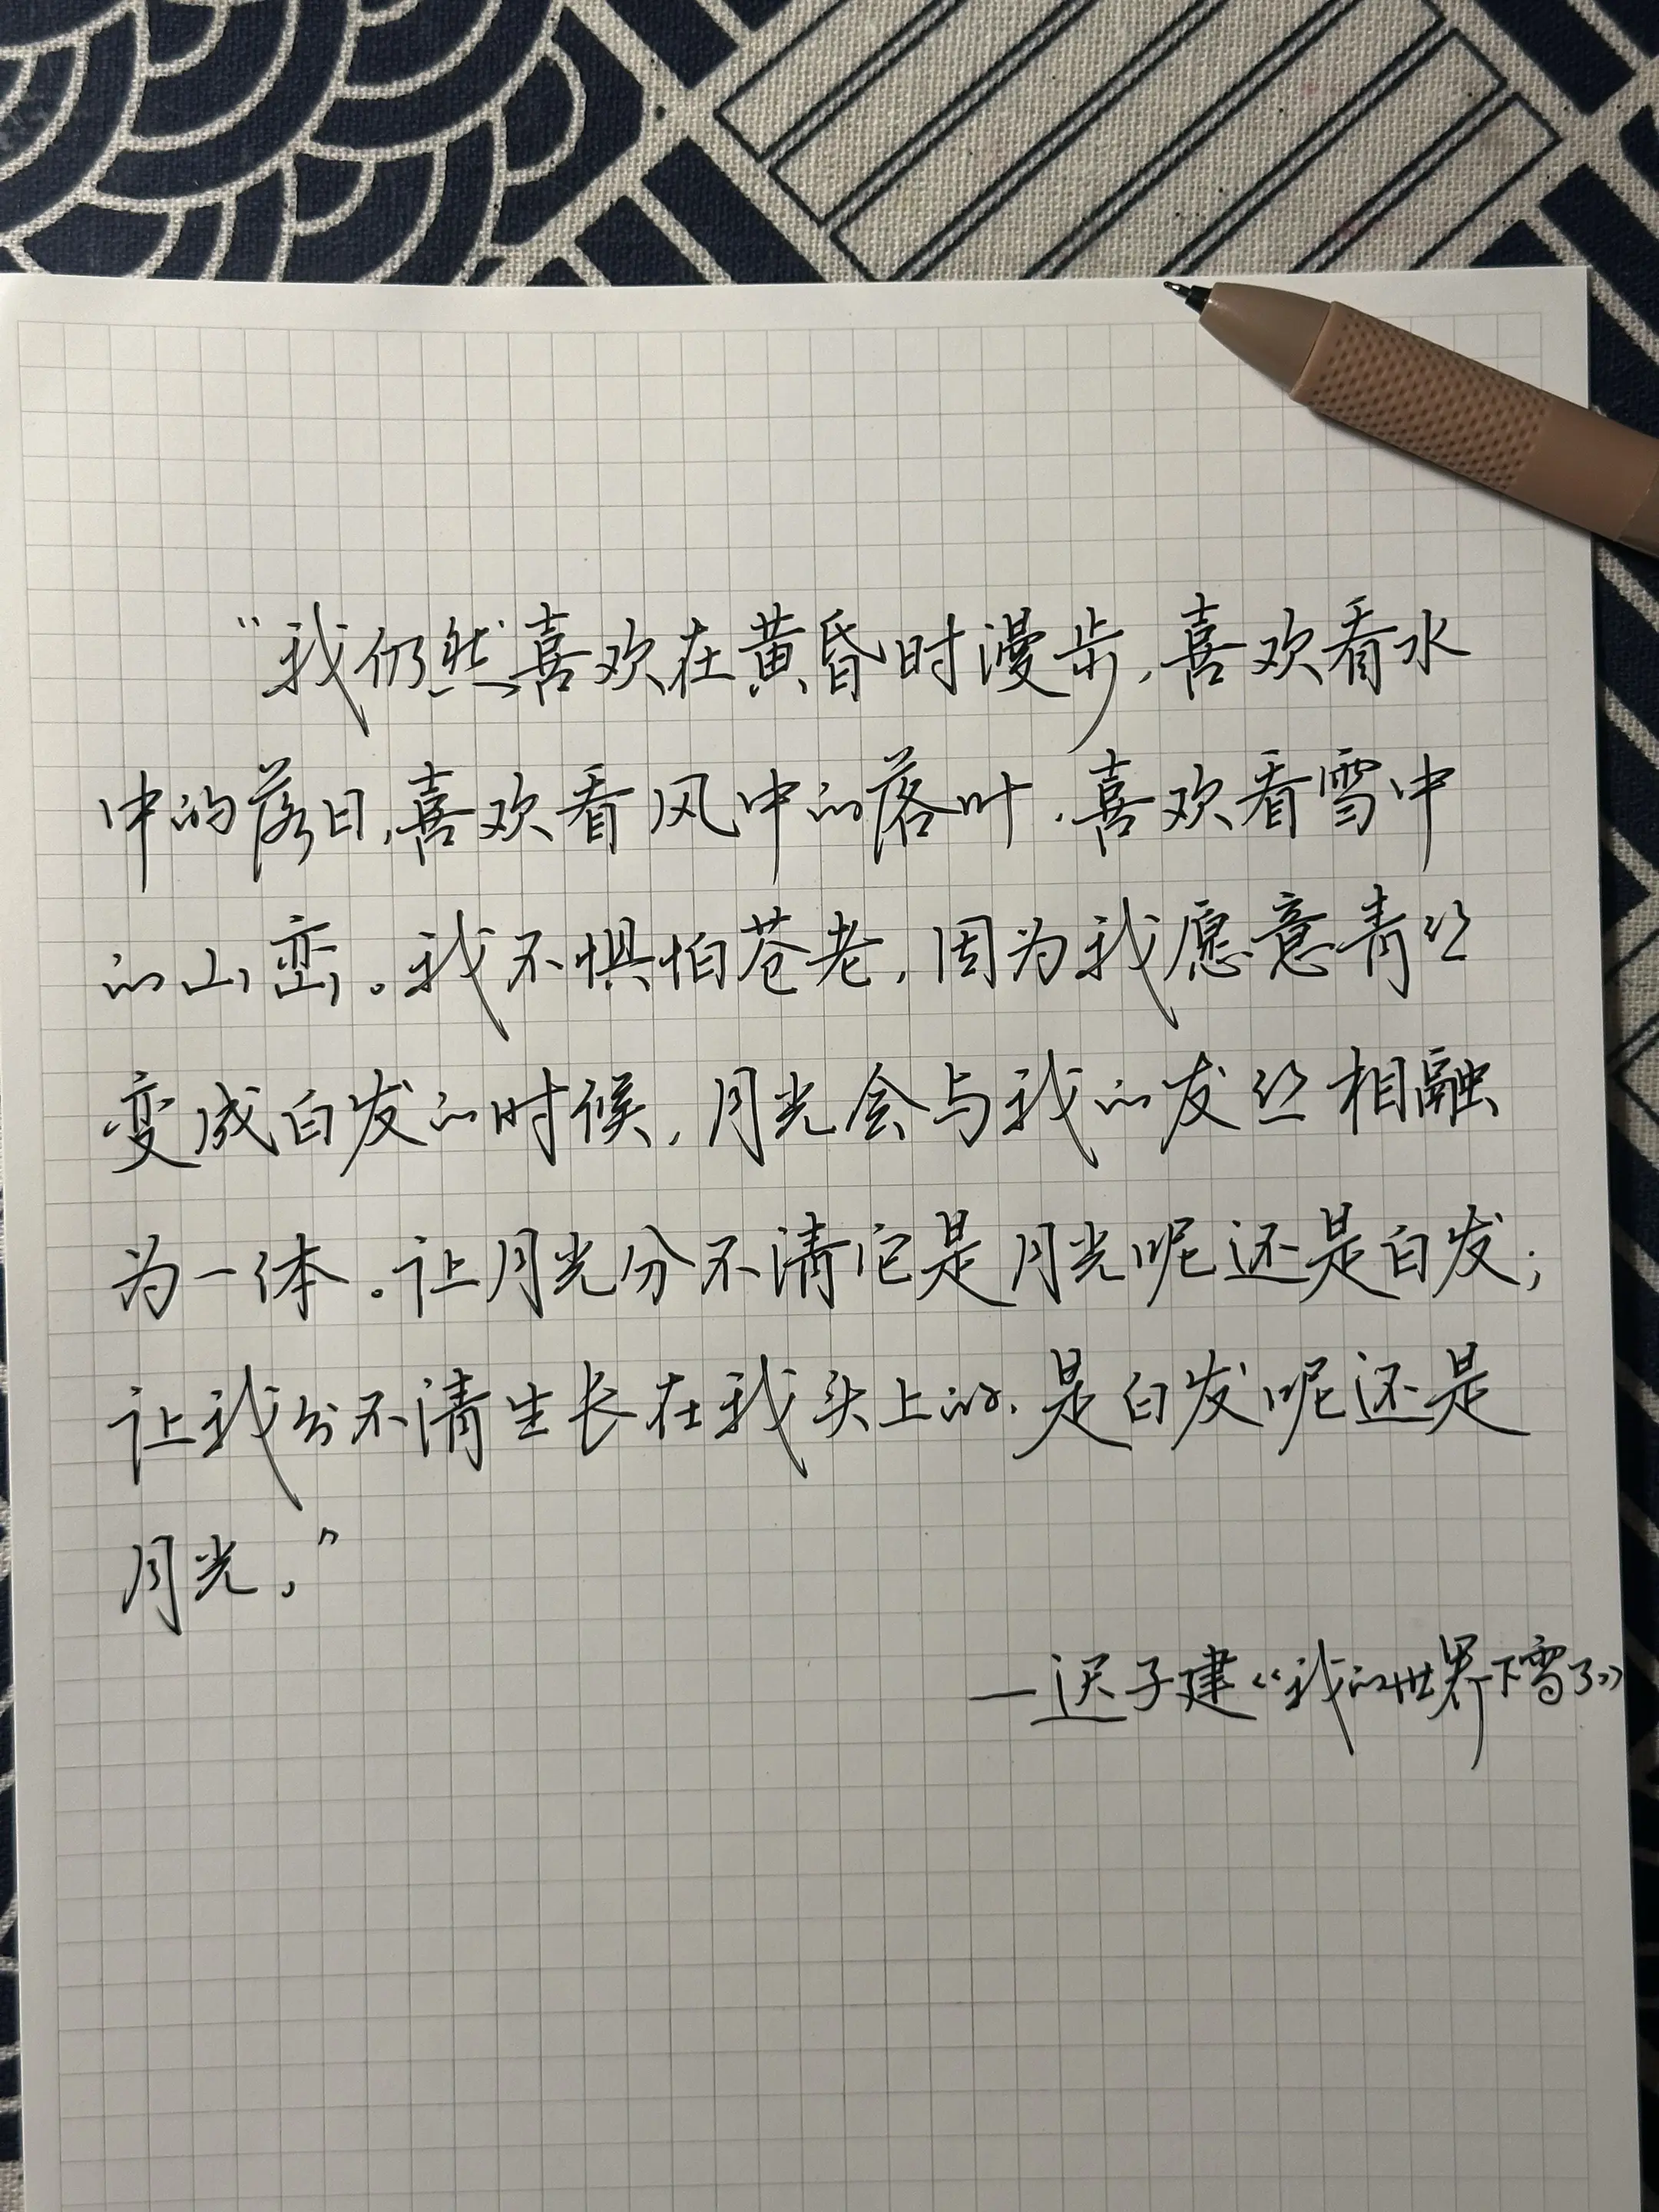 “我仍然喜欢在黄昏时漫步，喜欢看水
中的落日，喜欢看风中的落叶，喜欢看雪中
的山峦。我不惧怕苍老，因为我愿意青丝
变成白发的时候，月光会与我的发丝相融
为一体。让月光分不清它是月光呢还是白发；
让我分不清生长在我头上的，是白发呢还是
月光。”
—迟子建《我的世界下雪了》